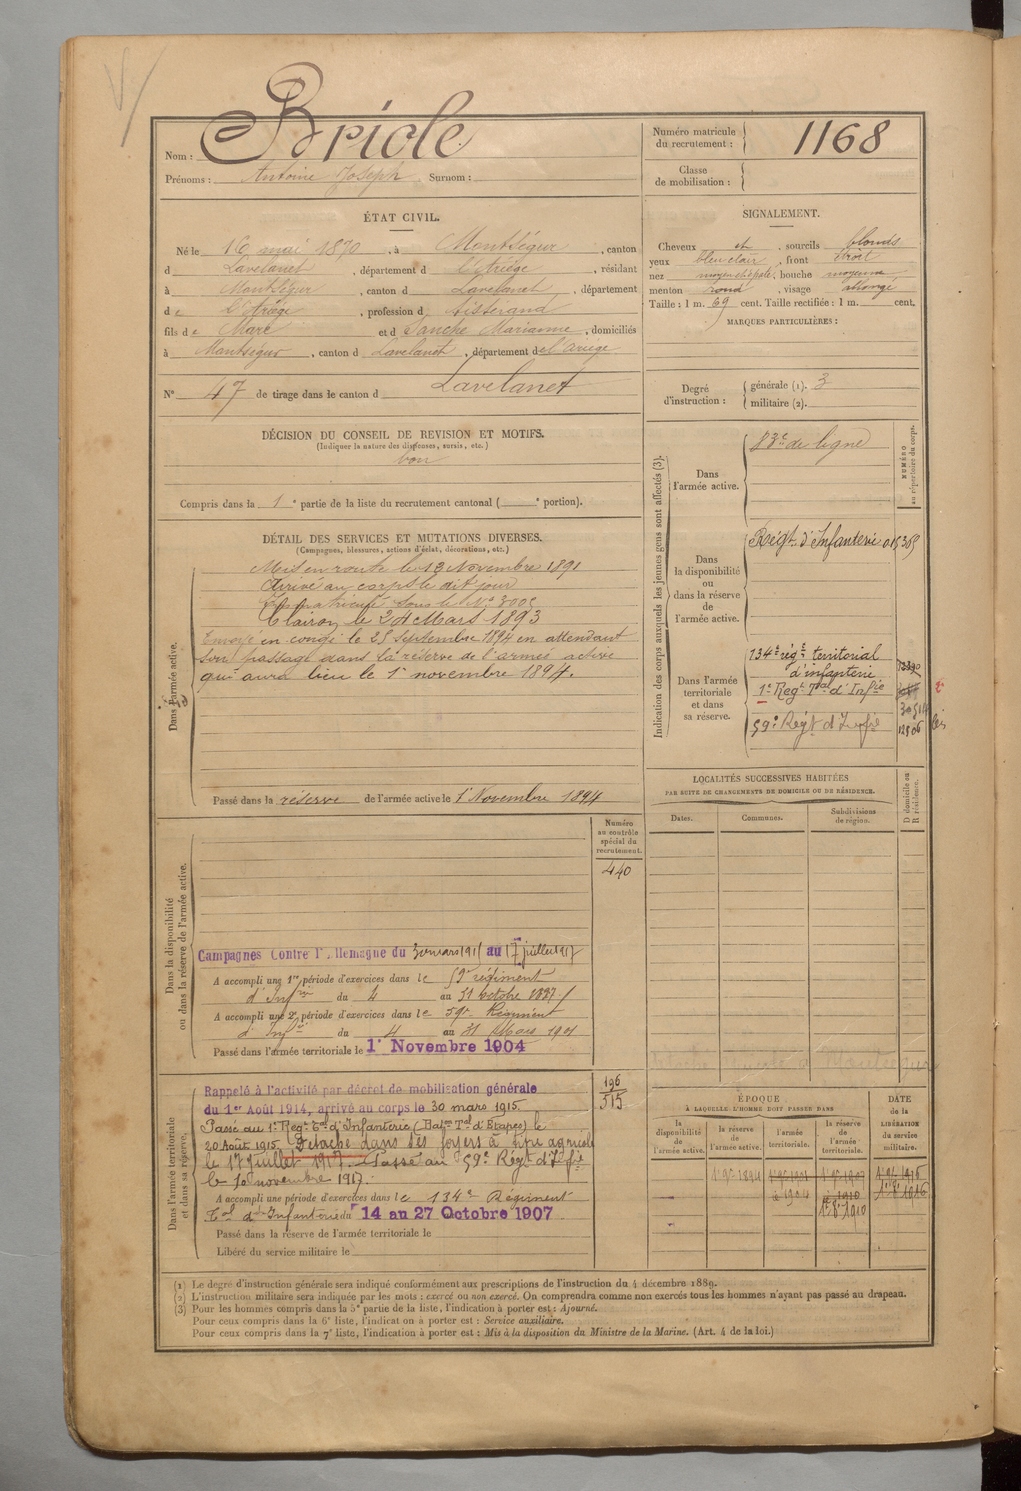 Nom : Briole
Prénoms : Antoine Joseph Surnom :
Numéro matricule du recrutement : 1168
Classe de mobilisation :
ÉTAT CIVIL.
Né le 16 mai 1870, à Montségur, canton
d Lavelanet, département d l'Ariège, résidant
à Montségur, canton d Lavelanet, département
d e l'Ariège, profession d Tisserand
fils d e Marc et d Sanche Marianne, domiciliés
à Montségur, canton d Lavelanet, département de l'Ariège
N° 47 de tirage dans le canton d Lavelanet
SIGNALEMENT.
Cheveux et, sourcils blonds
yeux bleu clair, front étroit
nez moyen, bouche moyenne
menton rond, visage allongé
Taille : 1 m. 69 cent. Taille rectifiée : 1 m. cent.
MARQUES PARTICULIÈRES :
Degré d'instruction :
générale (1). 3
militaire (2).
DÉCISION DU CONSEIL DE REVISION ET MOTIFS.
(Indiquer la nature des dispenses, sursis, etc.)
bon
Compris dans la 1e partie de la liste du recrutement cantonal ( e portion).
DÉTAIL DES SERVICES ET MUTATIONS DIVERSES.
(Campagnes, blessures, actions d'éclat, décorations, etc.)
Dans l'armée active.
Mis en route le 13 Novembre 1891
Arrivé au corps le dit jour
Immatriculé sous le N°
Clairon le 24 Mars 1893
Envoyé en congé le 25 septembre 1894 en attendant
son passage dans la réserve de l'armée active
qui aura lieu le 1er novembre 1894.
Passé dans la réserve de l'armée active le 1er Novembre 1894
Indication des corps auxquels les jeunes gens sont affectés (3).
NUMÉRO au répertoire du corps.
Dans l'armée active.
83e de ligne
Dans la disponibilité ou dans la réserve de l'armée active.
Régt d'Infanterie
Dans l'armée territoriale et dans sa réserve.
134e rég t territorial
d'infanterie
1er Regt Tal d'Infie
59e Régt d'Infie
12506 bis
LOCALITÉS SUCCESSIVES HABITÉES
PAR SUITE DE CHANGEMENTS DE DOMICILE OU DE RÉSIDENCE.
Dates. Communes. Subdivisions de région. D domicile ou R résidence.
Dans la disponibilité ou dans la réserve de l'armée active.
Numéro au contrôle spécial du recrutement.
440
Campagnes Contre l'Allemagne du 30 mars 1915 au 17 juillet 1917
A accompli une 1re période d'exercices dans le 59e régiment
d'Infrie du 4 au 31 octobre 1897
A accompli une 2e période d'exercices dans le 59e Régiment
d'Infie du 4 au 31 Mars 1901
Passé dans l'armée territoriale le 1er Novembre 1904
Dans l'armée territoriale et dans sa réserve.
196
515
Rappelé à l'activité par décret de mobilisation générale
du 1er Août 1914, arrivé au corps le 30 mars 1915.
Passé au 1er Regt Tal d'Infanterie (Baton Tal d'Etapes) le
20 Août 1915. Détaché dans ses foyers à titre agricole
le 17 juillet 1917. Passé au 59e Régt d'Infie
le 10 novembre 1917.
A accompli une période d'exercices dans le 134e Régiment
Tal d'Infanterie du 14 au 27 Octobre 1907
Passé dans la réserve de l'armée territoriale le
Libéré du service militaire le
ÉPOQUE
À LAQUELLE L'HOMME DOIT PASSER DANS
la disponibilité de l'armée active.
la réserve de l'armée active.
l'armée territoriale.
la réserve de l'armée territoriale.
DATE de la LIBÉRATION du service militaire.
1er 9bre 1894
1904
1910
(1) Le degré d'instruction générale sera indiqué conformément aux prescriptions de l'instruction du 4 décembre 1889.
(2) L'instruction militaire sera indiquée par les mots : exercé ou non exercé. On comprendra comme non exercés tous les hommes n'ayant pas passé au drapeau.
(3) Pour les hommes compris dans la 5e partie de la liste, l'indication à porter est : Ajourné.
Pour ceux compris dans la 6e liste, l'indication à porter est : Service auxiliaire.
Pour ceux compris dans la 7e liste, l'indication à porter est : Mis à la disposition du Ministre de la Marine. (Art. 4 de la loi.)